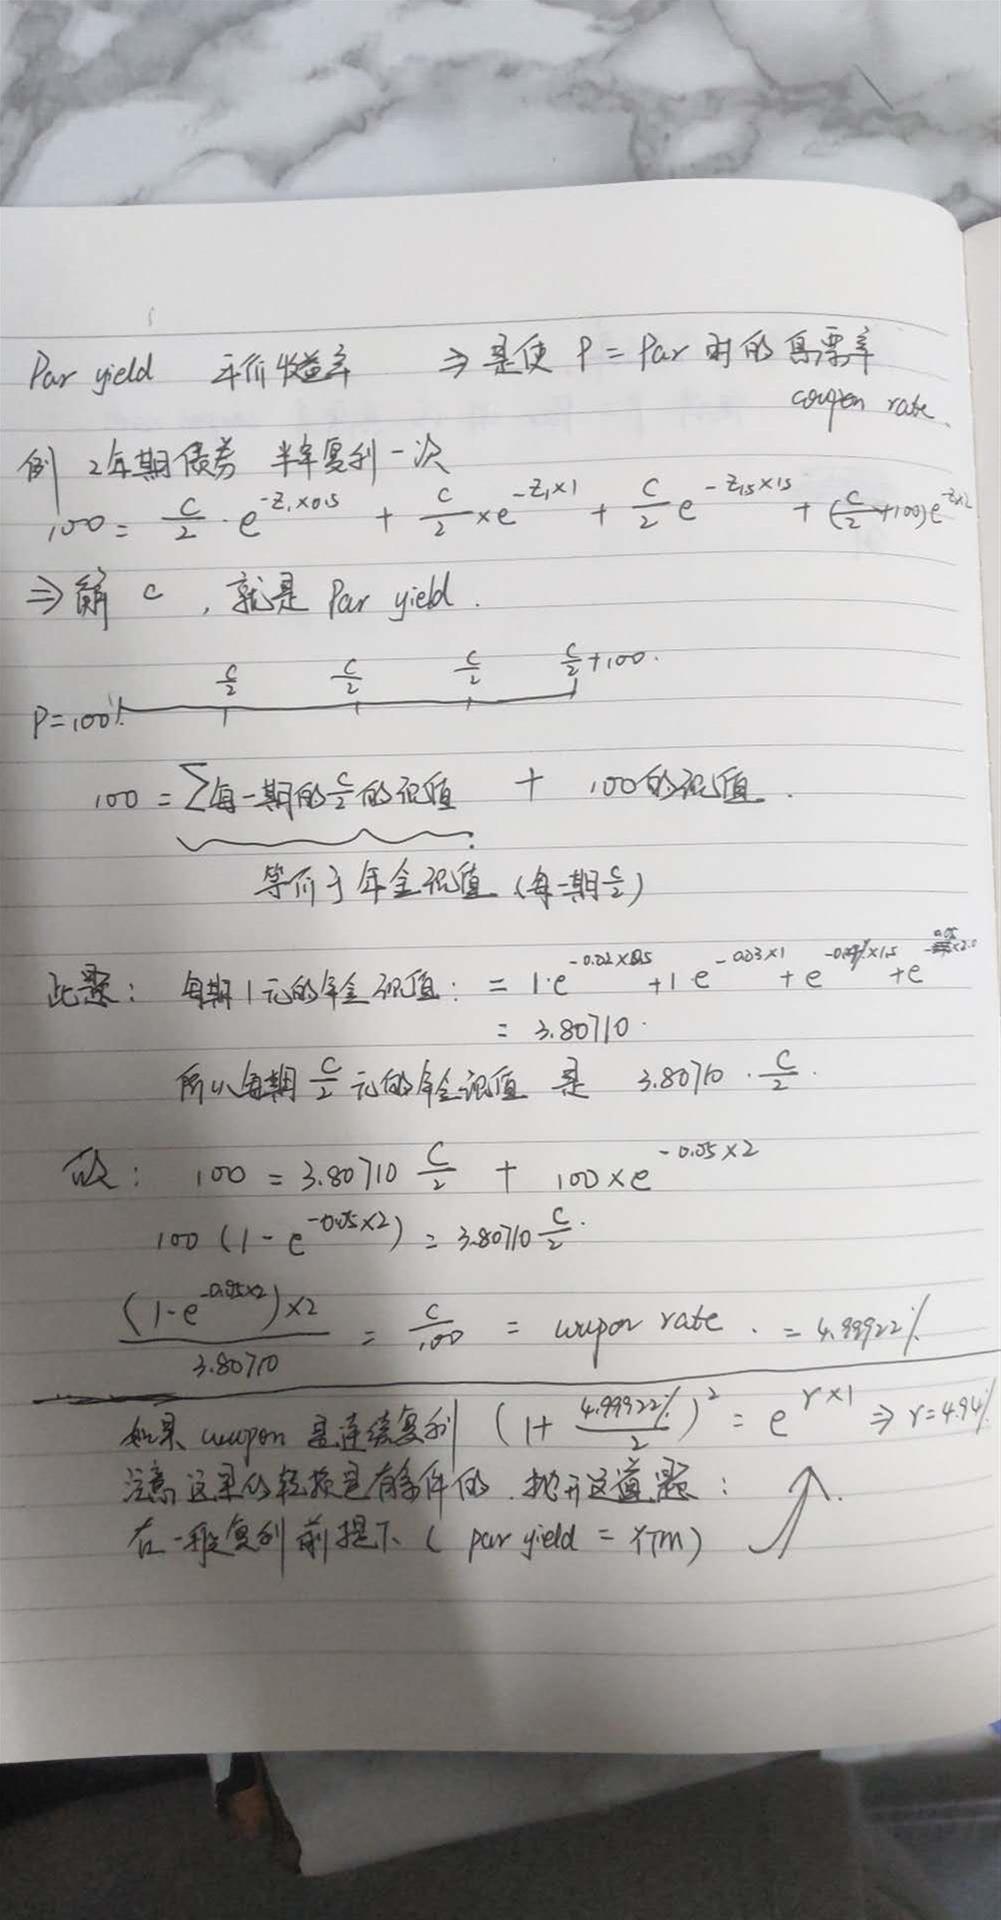 Par yield 平价收益率 ⇒ 是使 P = Par 时的息票率
coupon rate.
例 2年期债券 半年复利一次
100 = C/2 · e^(-Z₁×0.5) + C/2 × e^(-Z₁×1) + C/2 e^(-Z₁.₅×1.5) + (C/2 +100)e^(-Z₂×2)
⇒ 解 C , 就是 Par yield.
C/2 C/2 C/2 C/2 + 100.
P=100
100 = ∑每一期的C/2的现值 + 100的现值.
等价于年金现值 (每一期C/2)
此题: 每期1元的年金现值: = 1·e^(-0.02×0.5) + 1·e^(-0.03×1) + e^(×1.5) + e^(-0.05×2.0)
= 3.80710.
所以每期 C/2 元的年金现值 是 3.80710 · C/2.
故: 100 = 3.80710 C/2 + 100×e^(-0.05×2)
100 (1 - e^(-0.05×2)) = 3.80710 C/2.
(1-e^(-0.05×2))×2 / 3.80710 = C/100 = coupon rate. = 4.99922%
如果 coupon 是连续复利 (1+ 4.99922%/2)² = e^(r×1) ⇒ r=4.94%
注意 这里的转换是有条件的. 抛开这道题:
在一般复利前提下 ( par yield = YTM)